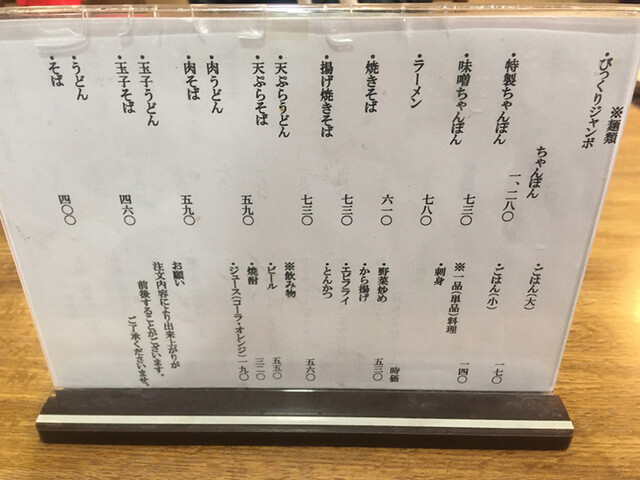 ※麺類
・びっくりジャンボ
ちゃんぽん 一、二八〇
・特製ちゃんぽん 七三〇
・味噌ちゃんぽん 七八〇
・ラーメン 六一〇
・焼きそば 七三〇
・揚げ焼きそば 七三〇
・天ぷらうどん
・天ぷらそば 五九〇
・肉うどん
・肉そば 五九〇
・玉子うどん
・玉子そば 四六〇
・うどん
・そば 四〇〇
・ごはん(大) 一七〇
・ごはん(小) 一四〇
※一品(単品)料理
・刺身 時価
・野菜炒め 五三〇
・から揚げ
・エビフライ
・とんかつ 五六〇
※飲み物
・ビール 五五〇
・焼酎 三二〇
・ジュース(コーラ・オレンジ) 一九〇
お願い
注文内容により出来上がりが
前後することがございます。
ご了承くださいませ。